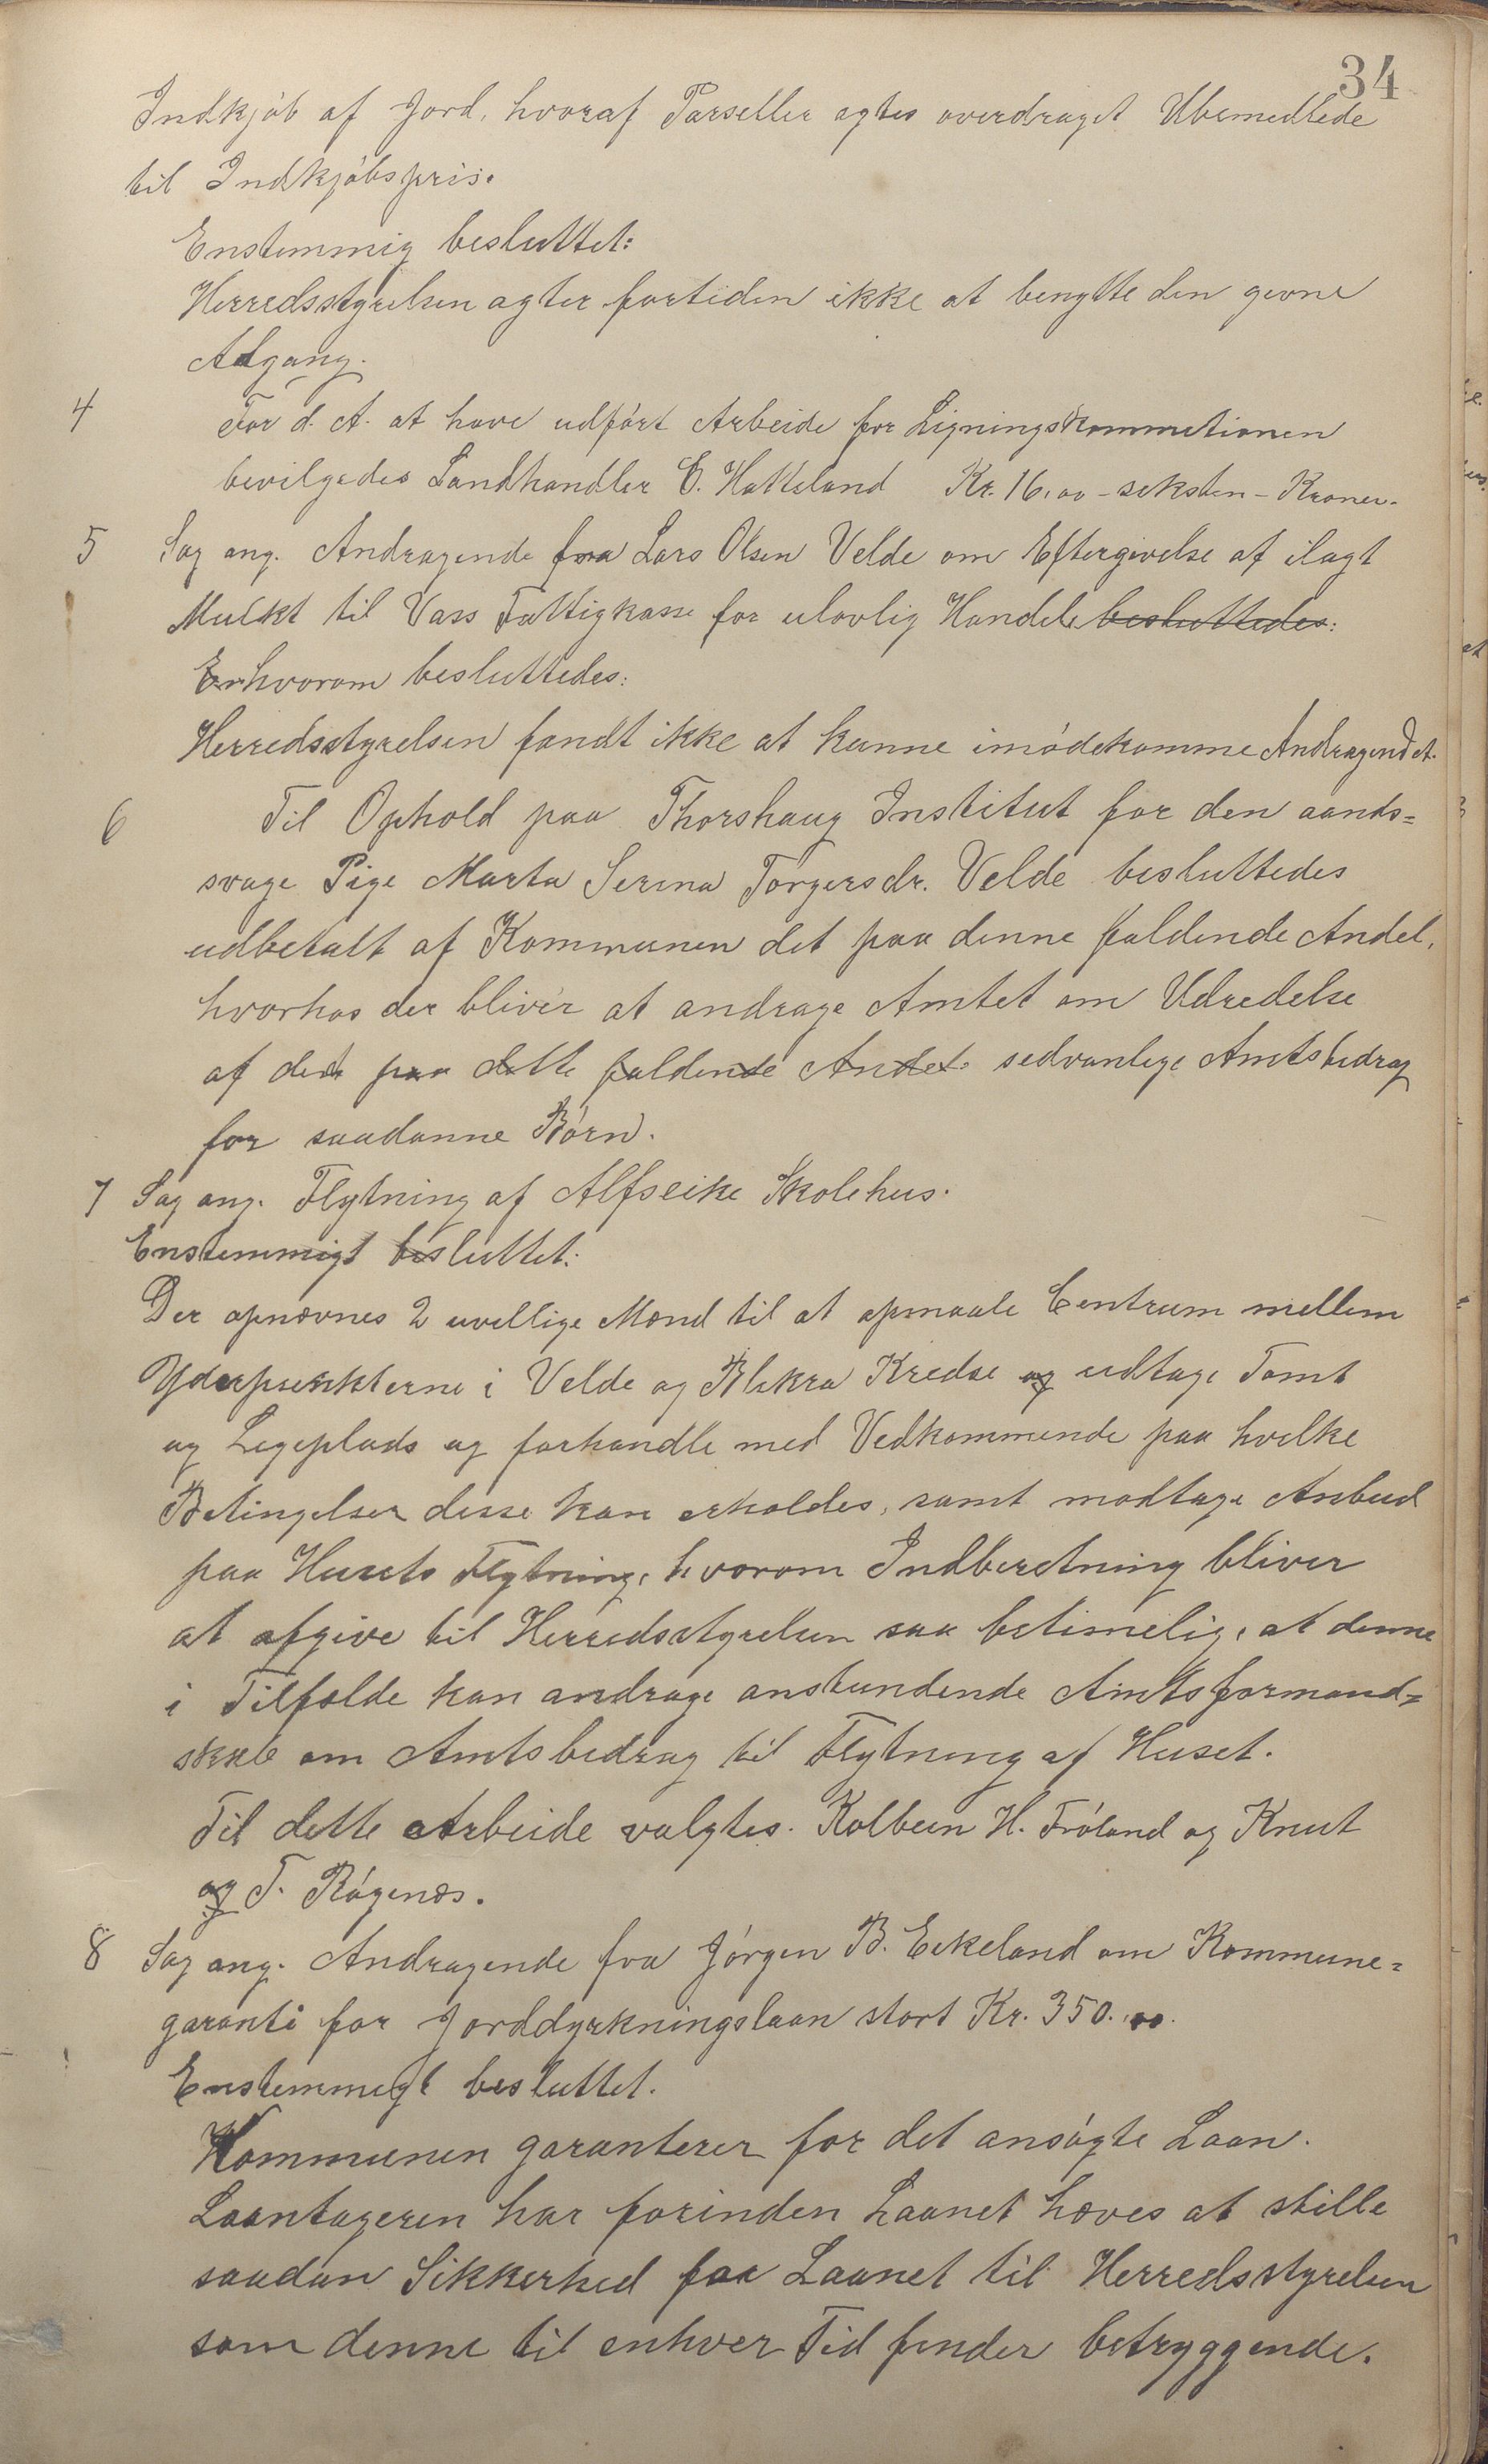 34
Indkjøb af Jord, hvoraf Parseller agtes overdraget Ubemedlede
til Indkjøbspris.
Enstemmig besluttet:
Herredsstyrelsen agter fortiden ikke at benytte den givne
Adgang.
4 For d. A. at have udført Arbeide for Ligningskommitionen
bevilgedes Landhandler E. Hatteland Kr. 16,00 - seksten - Kroner.
5 Sag ang. Andragende fra Lars Olsen Velde om Eftergivelse af ilagt
Mulkt til Vass Fattigkasse for ulovlig Handel besluttedes:
Er hvorom besluttedes:
Herredsstyrelsen fandt ikke at kunne imødekomme Andragendet.
6 Til Ophold paa Thorshaug Institut for den aands=
svage Pige Marta Serina Torgersdr. Velde besluttedes
udbetalt af Kommunen det paa denne faldende Andel,
hvorhos der bliver at andrage Amtet om Udredelse
af det paa dette faldende Andel. sedvanlige Amtsbidrag
for saadanne Børn.
7 Sag ang. Flytning af Alfseike Skolehus.
Enstemmigt besluttet:
Der opnævnes 2 uvillige Mænd til at opmaale Centrum mellem
Yderpunkterne i Velde og Blikra Kredse og udtage Tomt
og Legeplads og forhandle med Vedkommende paa hvilke
Betingelser disse kan erholdes, samt modtage Anbud
paa Husets Flytning, hvorom Indberetning bliver
at afgive til Herredsstyrelsen saa betimelig, at denne
i Tilfælde kan andrage anstundende Amtsformand=
skab om Amtsbidrag til Flytning af Huset.
Til dette Arbeide valgtes. Kolbein H. Frøland og Knut
og T. Røgenæs.
8 Sag ang. Andragende fra Jørgen B. Eikeland om Kommune=
garanti for Jorddyrkningslaan stort Kr. 350.00.
Enstemmigt besluttet.
Kommunen garanterer for det ansøgte Laan.
Laantageren har forinden Laanet hæves at stille
saadan Sikkerhed for Laanet til Herredsstyrelsen
som denne til enhver Tid finder betryggende.